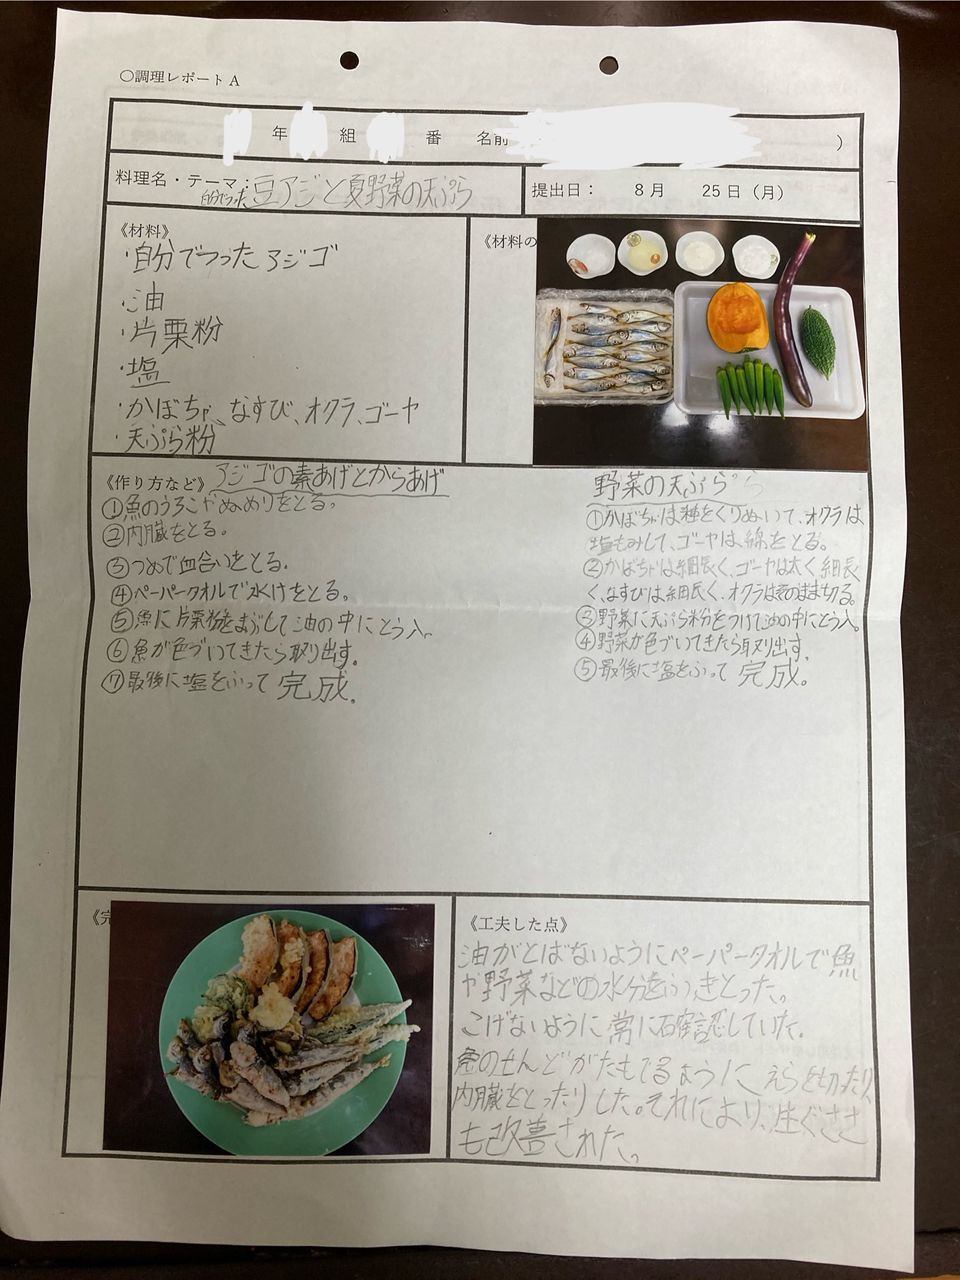 〇調理レポートA
年 組 番 名前 )
料理名・テーマ：自分でつった豆アジと夏野菜の天ぷら
提出日： 8月 25日（月）
《材料》
・自分でつったアジゴ
・油
・片栗粉
・塩
・かぼちゃ、なすび、オクラ、ゴーヤ
・天ぷら粉
《材料の
《作り方など》アジゴの素あげとからあげ
①魚のうろこやぬめりをとる。
②内臓をとる。
③つめで血合いをとる。
④ペーパータオルで水けをとる。
⑤魚に片栗粉をまぶして油の中にとう入。
⑥魚が色づいてきたら取り出す。
⑦最後に塩をふって完成。
野菜の天ぷら
①かぼちゃは種をくりぬいて、オクラは
塩もみして、ゴーヤは綿をとる。
②かぼちゃは細長く、ゴーヤは太く細長
く、なすびは細長く、オクラはそのまま切る。
③野菜に天ぷら粉をつけて油の中にとう入。
④野菜が色づいてきたら取り出す。
⑤最後に塩をふって完成。
《完
《工夫した点》
油がとばないようにペーパータオルで魚
や野菜などの水分をふきとった。
こげないように常に確認していた。
魚のせんどがたもてるようにえらを切ったり、
内臓をとったりした。それにより、生ぐささ
も改善された。